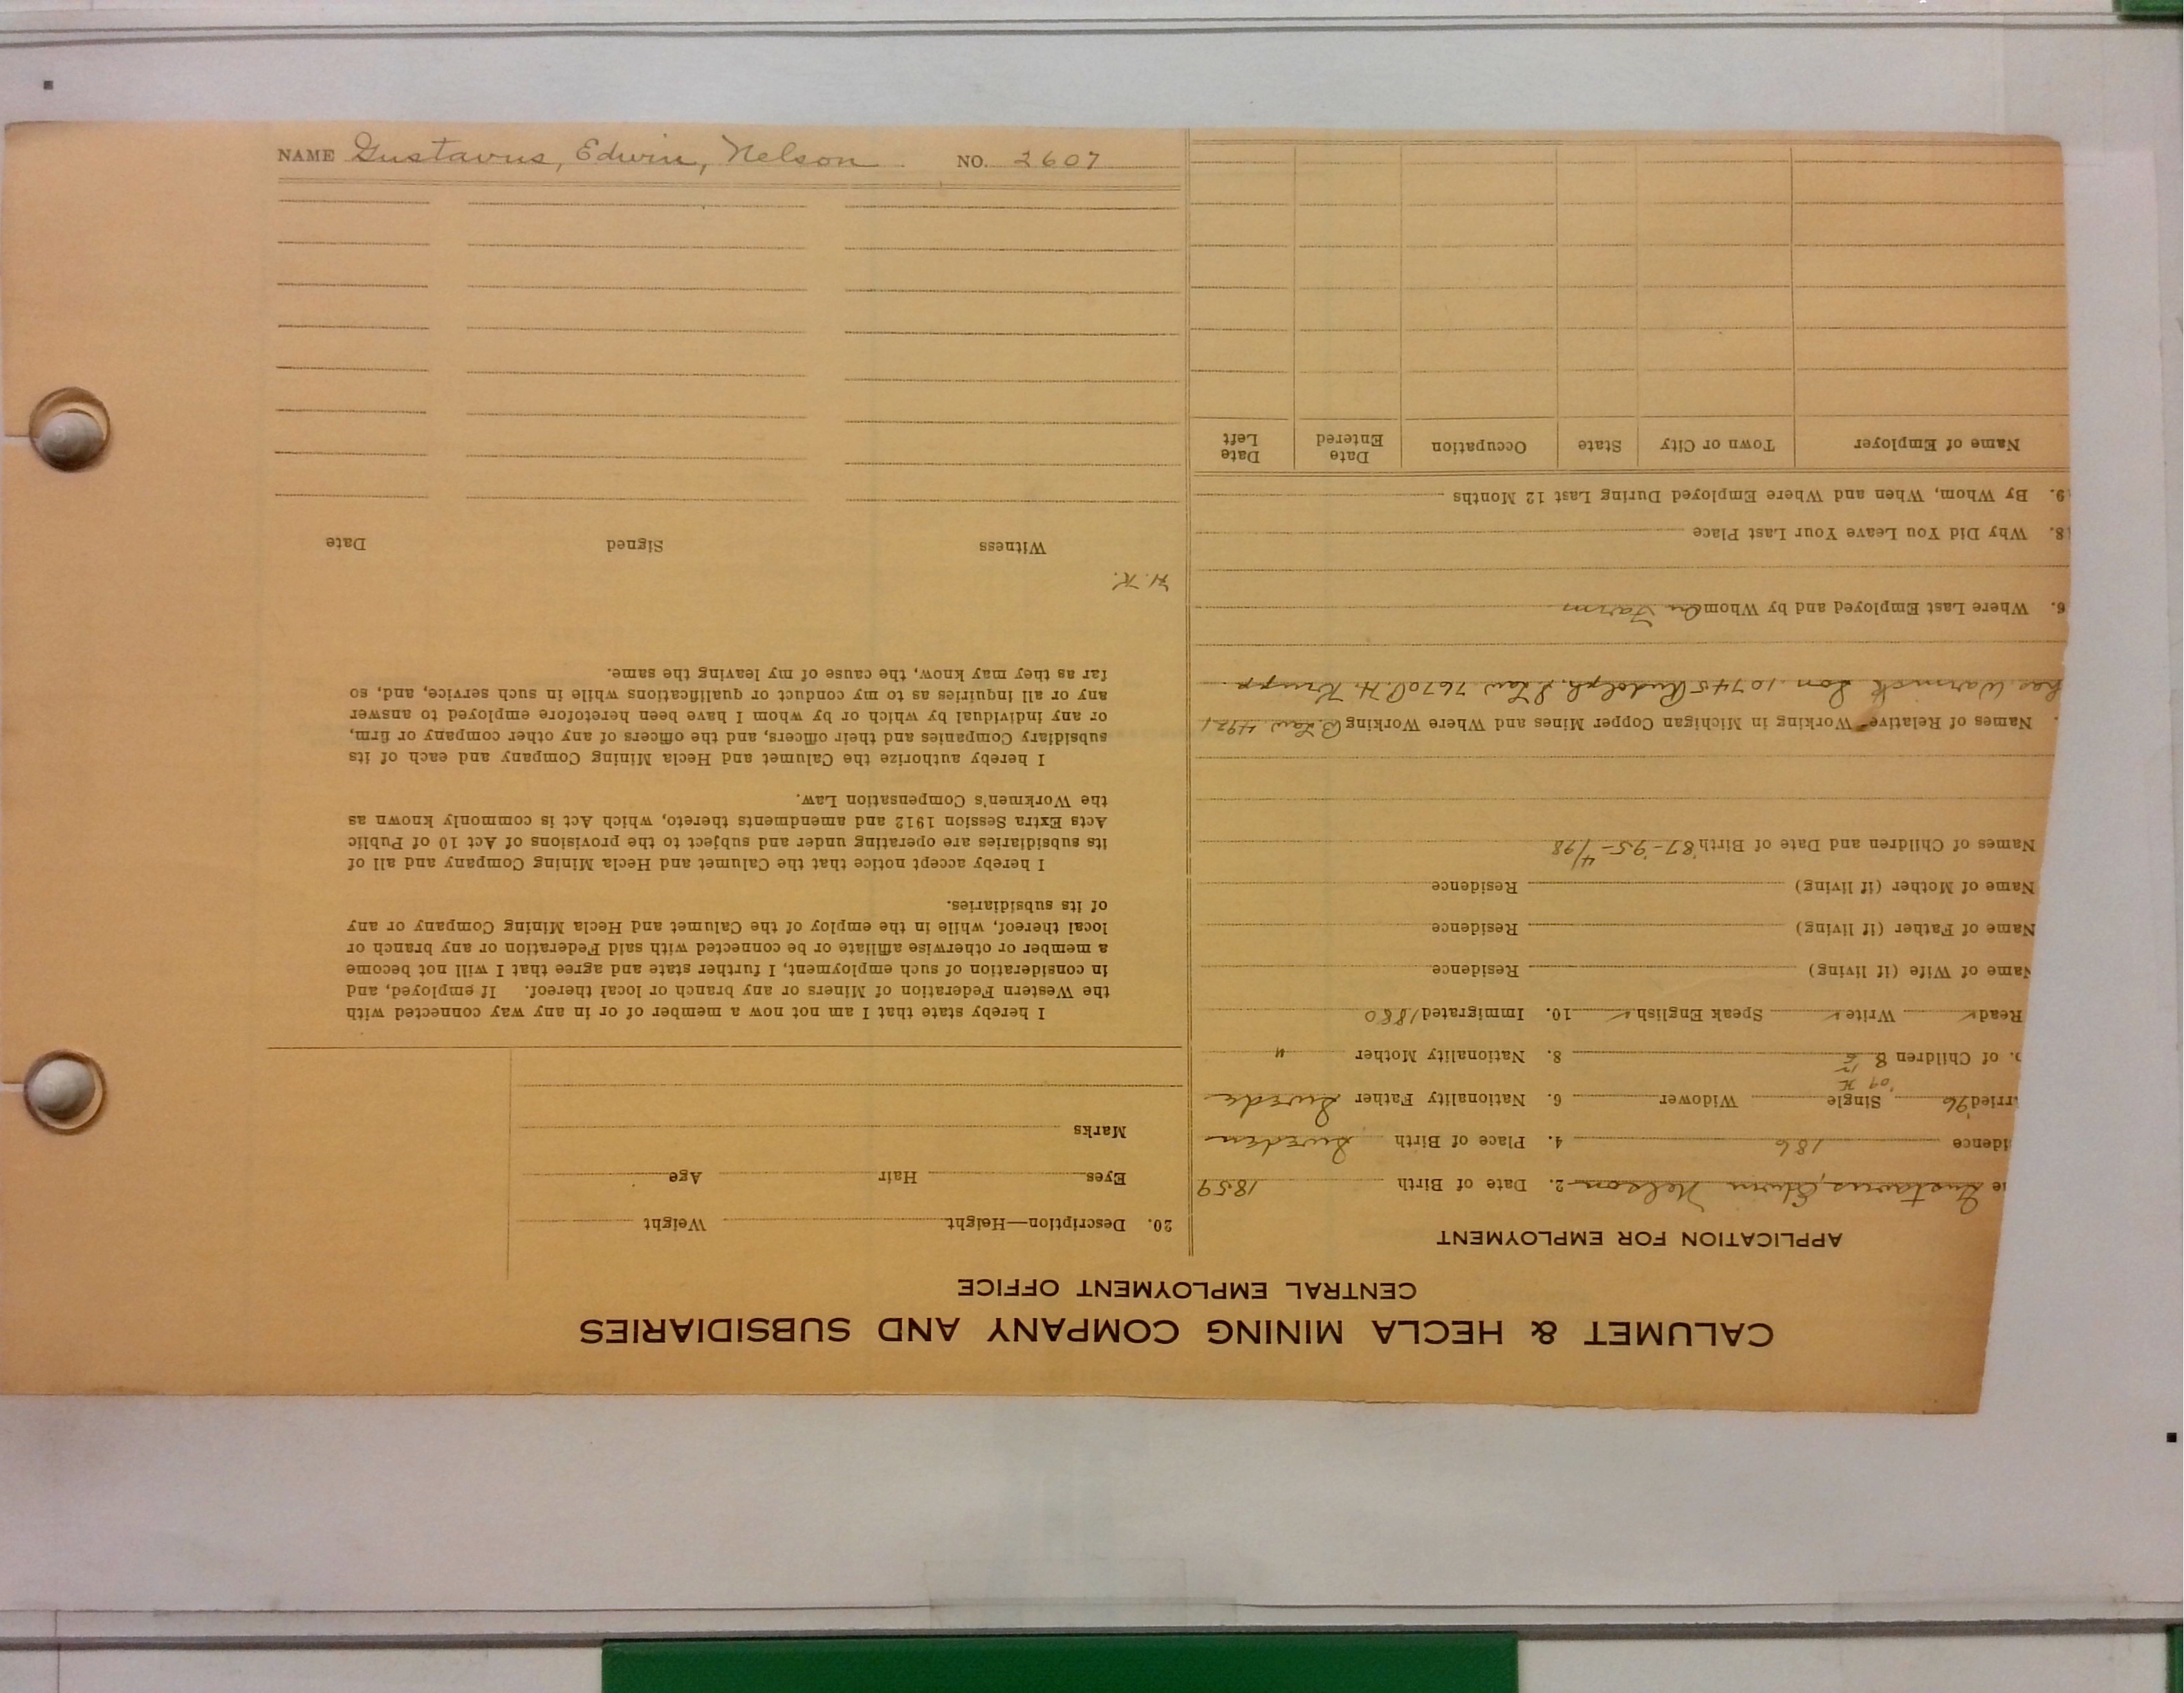 NAME Gustavus, Edwin, Nelson NO. 2607
CALUMET & HECLA MINING COMPANY AND SUBSIDIARIES
CENTRAL EMPLOYMENT OFFICE
APPLICATION FOR EMPLOYMENT
Gustavus, Edwin Nelson 2. Date of Birth 1859
idence 186 4. Place of Birth Sweden
rried '96 Single Widower 6. Nationality Father Swede
'09
of Children 8 8. Nationality Mother "
Read ✓ Write ✓ Speak English ✓ 10. Immigrated 1880
Name of Wife (if living) Residence
Name of Father (if living) Residence
Name of Mother (if living) Residence
Names of Children and Date of Birth '87-'95-4/98
Names of Relative Working in Michigan Copper Mines and Where Working B. Law 4921
Son 10745 Rudolph, S Law 7670 H. Krupp
6. Where Last Employed and by Whom on Farm
8. Why Did You Leave Your Last Place
9. By Whom, When and Where Employed During Last 12 Months
Name of Employer Town or City State Occupation Date Entered Date Left
20. Description—Height Weight
Eyes Hair Age
Marks
I hereby state that I am not now a member of or in any way connected with
the Western Federation of Miners or any branch or local thereof. If employed, and
in consideration of such employment, I further state and agree that I will not become
a member or otherwise affiliate or be connected with said Federation or any branch or
local thereof, while in the employ of the Calumet and Hecla Mining Company or any
of its subsidiaries.
I hereby accept notice that the Calumet and Hecla Mining Company and all of
its subsidiaries are operating under and subject to the provisions of Act 10 of Public
Acts Extra Session 1912 and amendments thereto, which Act is commonly known as
the Workmen's Compensation Law.
I hereby authorize the Calumet and Hecla Mining Company and each of its
subsidiary Companies and their officers, and the officers of any other company or firm,
or any individual by which or by whom I have been heretofore employed to answer
any or all inquiries as to my conduct or qualifications while in such service, and, so
far as they may know, the cause of my leaving the same.
H. K.
Witness Signed Date